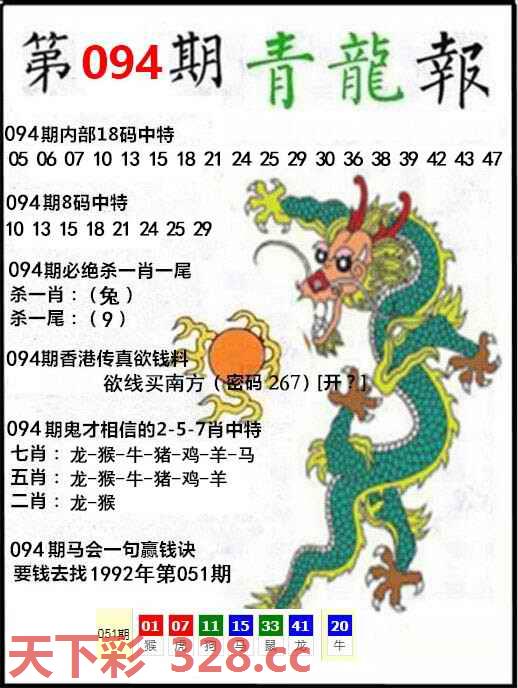 第094期青龍報
094期内部18码中特
05 06 07 10 13 15 18 21 24 25 29 30 36 38 39 42 43 47
094期8码中特
10 13 15 18 21 24 25 29
094期必绝杀一肖一尾
杀一肖：（兔）
杀一尾：（9）
094期香港传真欲钱料
欲线买南方（密码 267）[开？]
094期鬼才相信的2-5-7肖中特
七肖：龙-猴-牛-猪-鸡-羊-马
五肖：龙-猴-牛-猪-鸡-羊
二肖：龙-猴
094期马会一句赢钱诀
要钱去找1992年第051期
051期 01 07 11 15 33 41 20
猴 虎 狗 马 鼠 龙 牛
天下彩 328.cc